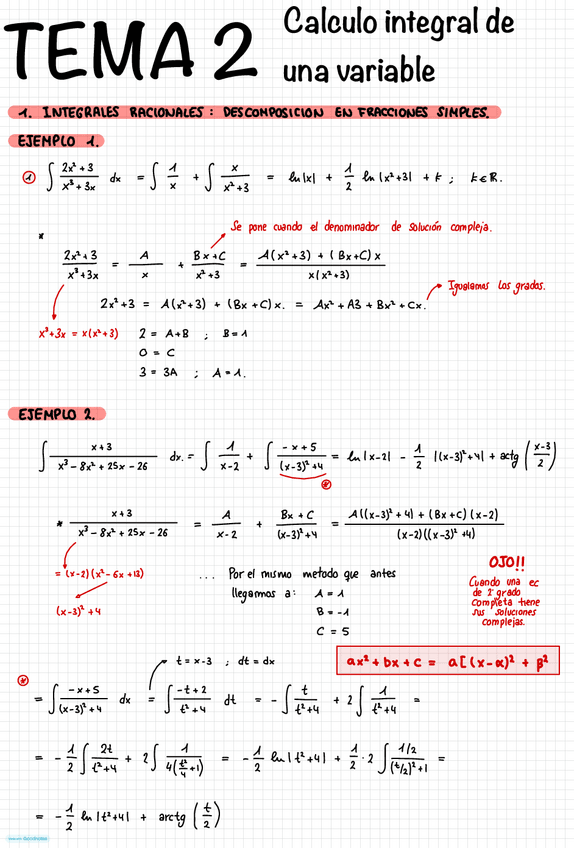 TEMA 2
Calculo integral de
una variable
1. INTEGRALES RACIONALES: DESCOMPOSICION EN FRACCIONES SIMPLES.
EJEMPLO 1.
① ∫ (2x²+3)/(x³+3x) dx = ∫ 1/x + ∫ x/(x²+3) = ln|x| + 1/2 ln|x²+3| + K ; K∈R.
Se pone cuando el denominador de solución compleja.
* (2x²+3)/(x³+3x) = A/x + (Bx+C)/(x²+3) = (A(x²+3) + (Bx+C)x)/(x(x²+3))
Igualamos los grados.
2x²+3 = A(x²+3) + (Bx+C)x. = Ax² + A3 + Bx² + Cx.
x³+3x = x(x²+3)
2 = A+B ; B=1
0 = C
3 = 3A ; A=1.
EJEMPLO 2.
∫ (x+3)/(x³-8x²+25x-26) dx. = ∫ 1/(x-2) + ∫ (-x+5)/((x-3)²+4) = ln|x-2| - 1/2 |(x-3)²+4| + actg((x-3)/2)
⊛
* (x+3)/(x³-8x²+25x-26) = A/(x-2) + (Bx+C)/((x-3)²+4) = (A((x-3)²+4) + (Bx+C)(x-2))/((x-2)((x-3)²+4))
= (x-2)(x²-6x+13)
(x-3)²+4
... Por el mismo metodo que antes
llegamos a: A=1
B=-1
C=5
OJO!!
Cuando una ec
de 2º grado
completa tiene
sus soluciones
complejas.
ax²+bx+c = a[(x-α)² + β²
t=x-3 ; dt=dx
⊛ = ∫ (-x+5)/((x-3)²+4) dx = ∫ (-t+2)/(t²+4) dt = -∫ t/(t²+4) + 2∫ 1/(t²+4) =
= -1/2 ∫ 2t/(t²+4) + 2∫ 1/(4(t²/4+1)) = -1/2 ln|t²+4| + 1/2·2 ∫ (1/2)/((t/2)²+1) =
= -1/2 ln|t²+4| + arctg(t/2)